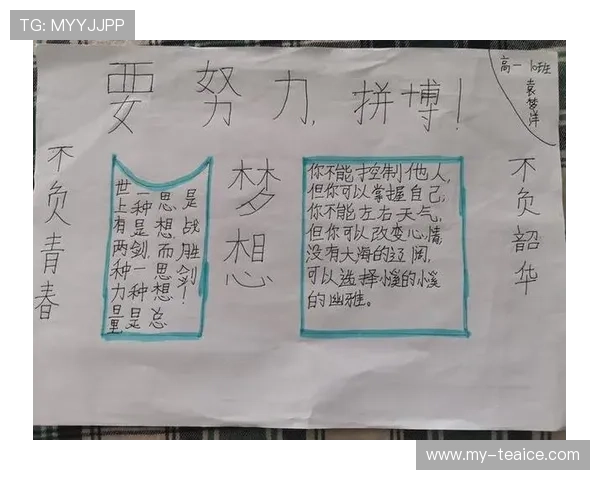 TG: MYYJJPP
要努力,拼博!
高一10班
袁梦洋
不负青春
世一思是
上种想战
有是,胜
两剑而思剑
种一想!
力种
量是总
梦想
你不能控制他人,
但你可以掌握自己;
你不能左右天气,
但你可以改变心情,
没有大海的辽阔,
可以选择小溪的小溪
的幽雅。
不负韶华
www.my-teaice.com